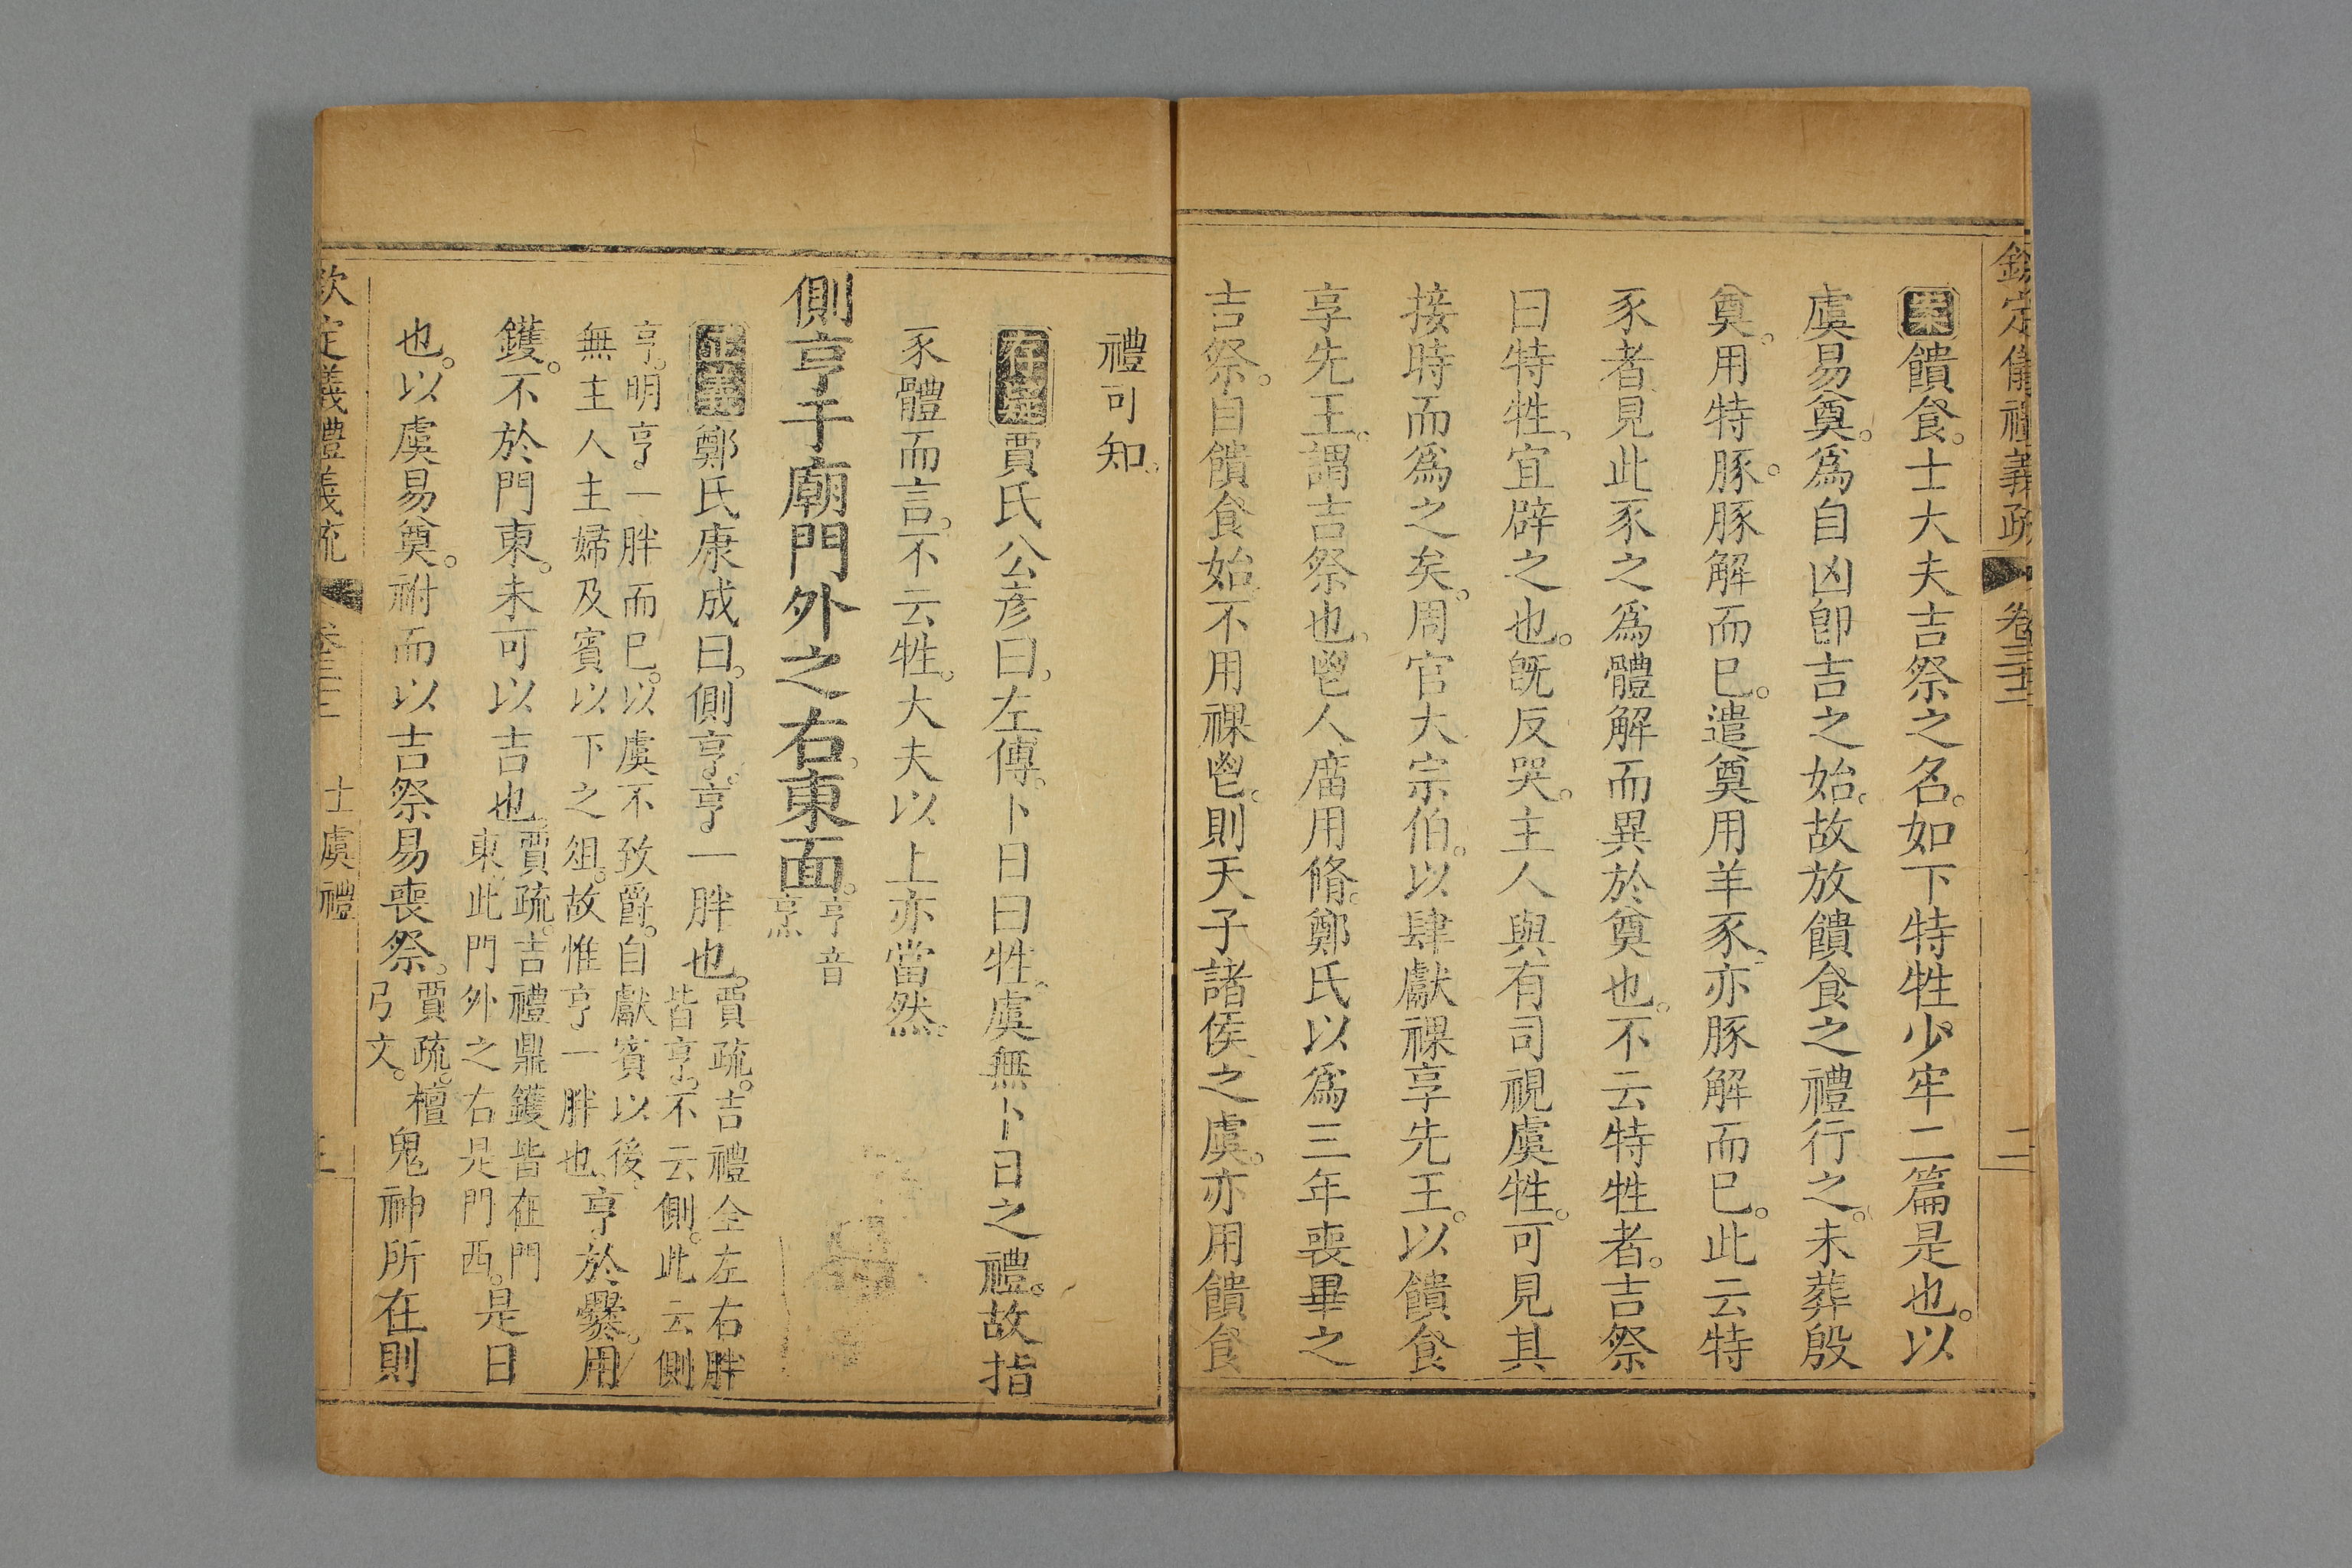 欽定儀禮義疏 卷三十三 二
案饋食。士大夫吉祭之名。如下特牲少牢二篇是也。以
虞易奠。爲自凶卽吉之始。故放饋食之禮行之。未葬殷
奠。用特豚。豚解而已。遣奠用羊豕。亦豚解而已。此云特
豕者。見此豕之爲體解而異於奠也。不云特牲者。吉祭
曰特牲。宜辟之也。旣反哭。主人與有司視虞牲。可見其
接時而爲之矣。周官大宗伯。以肆獻祼享先王。以饋食
享先王。謂吉祭也。鬯人廟用脩。鄭氏以爲三年喪畢之
吉祭。自饋食始。不用祼鬯。則天子諸侯之虞。亦用饋食
禮可知。
存疑賈氏公彦曰。左傳。卜日曰牲。虞無卜日之禮。故指
豕體而言。不云牲。大夫以上亦當然。
側亨于廟門外之右。東面。亨音
烹
正義鄭氏康成曰。側亨。亨一胖也。賈疏。吉禮全左右胖
皆亨。不云側。此云側
亨。明亨一胖而已。以虞不致爵。自獻賓以後。
無主人主婦及賓以下之俎。故惟亨一胖也。亨於爨。用
鑊。不於門東。未可以吉也。賈疏。吉禮鼎鑊皆在門
東。此門外之右是門西。是日
也。以虞易奠。祔而以吉祭易喪祭。賈疏。檀
弓文。鬼神所在則
欽定儀禮義疏 卷三十三 士虞禮